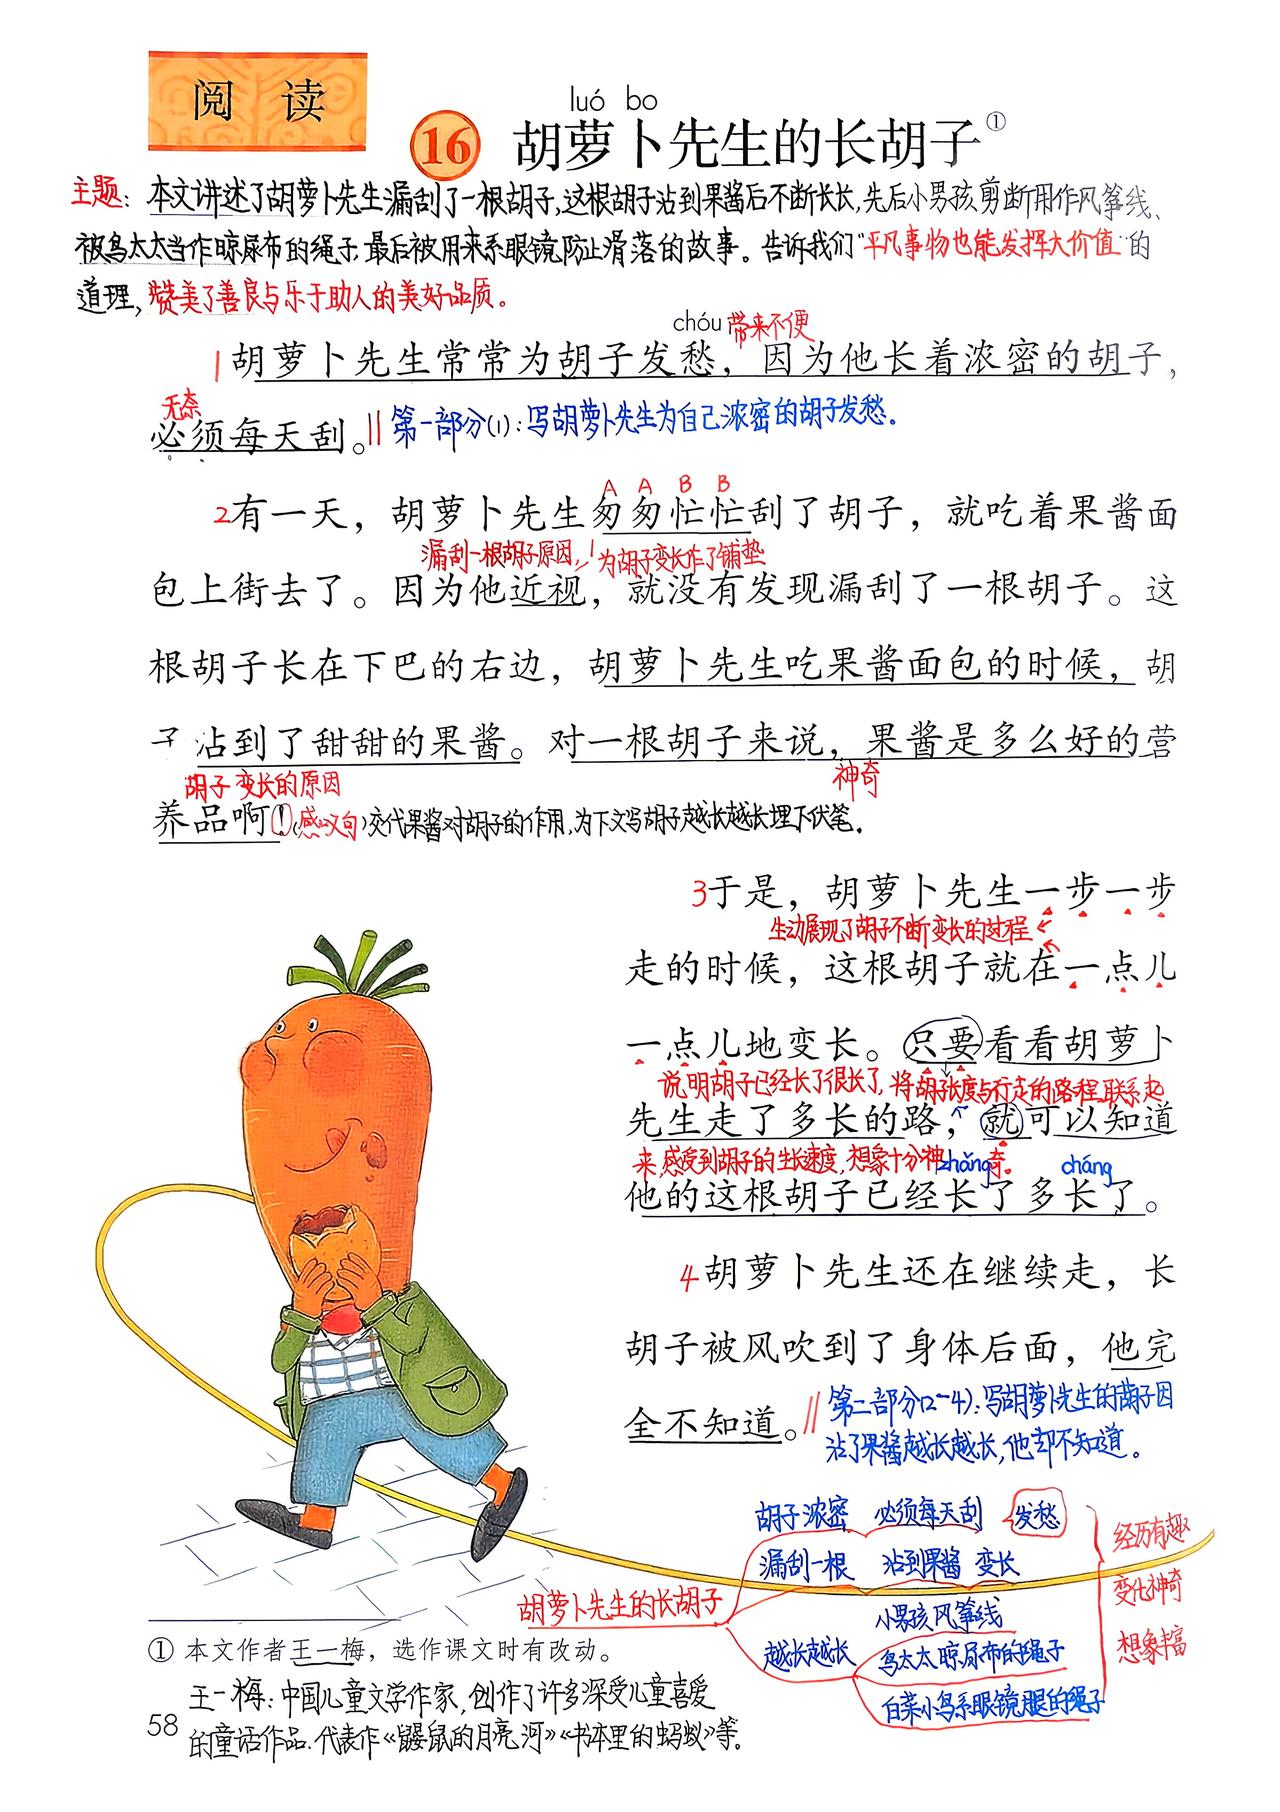 阅 读
luó bo
16 胡萝卜先生的长胡子①
主题：本文讲述了胡萝卜先生漏刮了一根胡子，这根胡子沾到果酱后不断长长，先后小男孩剪断用作风筝线、
被鸟太太当作晾尿布的绳子，最后被用来系眼镜防止滑落的故事。告诉我们“平凡事物也能发挥大价值”的
道理，赞美了善良与乐于助人的美好品质。
chóu 带来不便
1胡萝卜先生常常为胡子发愁，因为他长着浓密的胡子，
无奈
必须每天刮。‖第一部分(1)：写胡萝卜先生为自己浓密的胡子发愁。
A A B B
2有一天，胡萝卜先生匆匆忙忙刮了胡子，就吃着果酱面
漏刮一根胡子原因，为胡子变长作了铺垫
包上街去了。因为他近视，就没有发现漏刮了一根胡子。这
根胡子长在下巴的右边，胡萝卜先生吃果酱面包的时候，胡
子沾到了甜甜的果酱。对一根胡子来说，果酱是多么好的营
胡子变长的原因 神奇
养品啊！(感叹句)交代果酱对胡子的作用，为下文写胡子越长越长埋下伏笔。
3于是，胡萝卜先生一步一步
生动展现了胡子不断变长的过程
走的时候，这根胡子就在一点儿
一点儿地变长。只要看看胡萝卜
说明胡子已经长了很长了，将胡子长度与行走的路程联系起
先生走了多长的路，就可以知道
来，感受到胡子的生长速度，想象十分神奇。
zhǎng cháng
他的这根胡子已经长了多长了。
4胡萝卜先生还在继续走，长
胡子被风吹到了身体后面，他完
全不知道。‖第二部分(2-4)：写胡萝卜先生的胡子因
沾了果酱越长越长，他却不知道。
胡子浓密 必须每天刮 发愁
漏刮一根 沾到果酱 变长
胡萝卜先生的长胡子
小男孩风筝线
越长越长 鸟太太晾尿布的绳子
白菜小鸟系眼镜腿的绳子
经历有趣
变化神奇
想象丰富
① 本文作者王一梅，选作课文时有改动。
王一梅：中国儿童文学作家，创作了许多深受儿童喜爱
的童话作品。代表作《鼹鼠的月亮河》《书本里的蚂蚁》等。
58